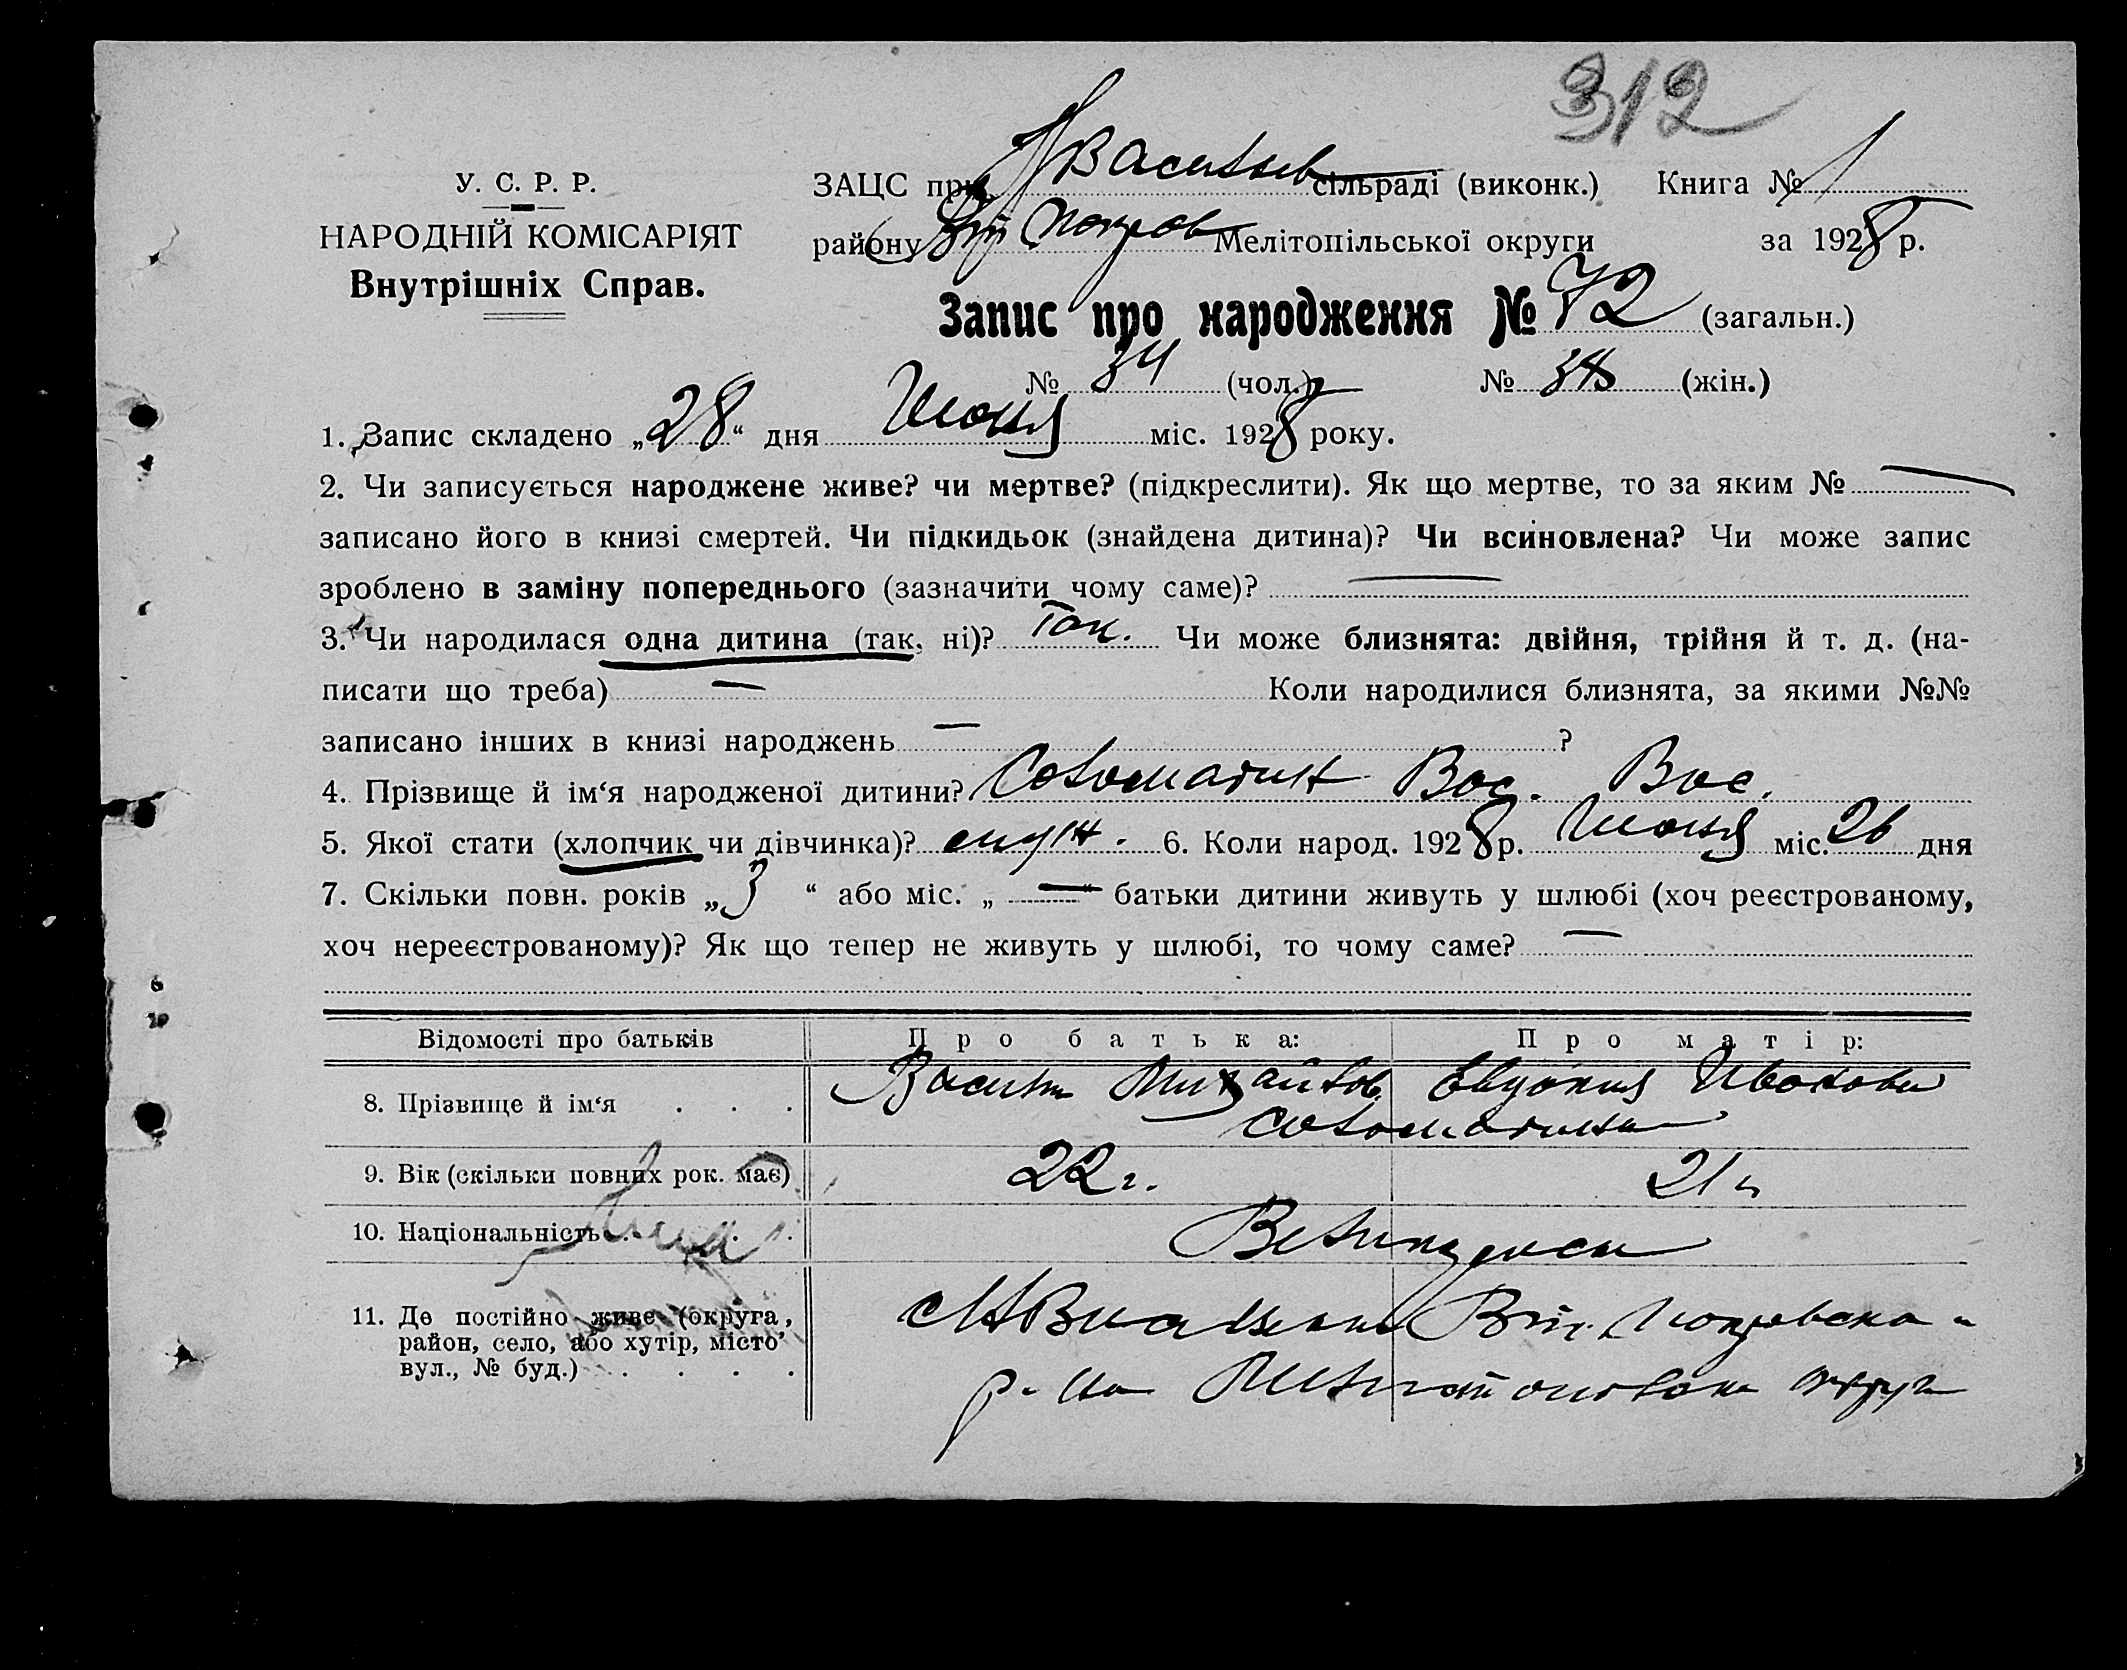 312
У. С. Р. Р.
НАРОДНІЙ КОМІСАРІЯТ
Внутрішніх Справ.
ЗАЦС при сільраді (виконк.) Книга № 1
району Мелітопільської округи за 1928 р.
Запис про народження № 72 (загальн.)
№ 34 (чол.) № 38 (жін.)
1. Запис складено „28“ дня Июня міс. 1928 року.
2. Чи записується народжене живе? чи мертве? (підкреслити). Як що мертве, то за яким № —
записано його в книзі смертей. Чи підкидьок (знайдена дитина)? Чи всиновлена? Чи може запис
зроблено в заміну попереднього (зазначити чому саме)? —
3. Чи народилася одна дитина (так, ні)? Так. Чи може близнята: двійня, трійня й т. д. (на-
писати що треба) — Коли народилися близнята, за якими №№
записано інших в книзі народжень — ?
4. Прізвище й ім‘я народженої дитини? Соломатин Вас. Вас.
5. Якої стати (хлопчик чи дівчинка)? 6. Коли народ. 1928 р. Июня міс. 26 дня
7. Скільки повн. років „3“ або міс. „—“ батьки дитини живуть у шлюбі (хоч реєстрованому,
хоч нереєстрованому)? Як що тепер не живуть у шлюбі, то чому саме? —
Відомості про батьків Про батька: Про матір:
8. Прізвище й ім‘я . . . Михайлов. Евдокия Ивановна
9. Вік (скільки повних рок. має) 22 г. 21 г.
10. Національність . . . .
11. Де постійно живе (округа,
район, село, або хутір, місто
вул., № буд.) . . . .
р-на округи